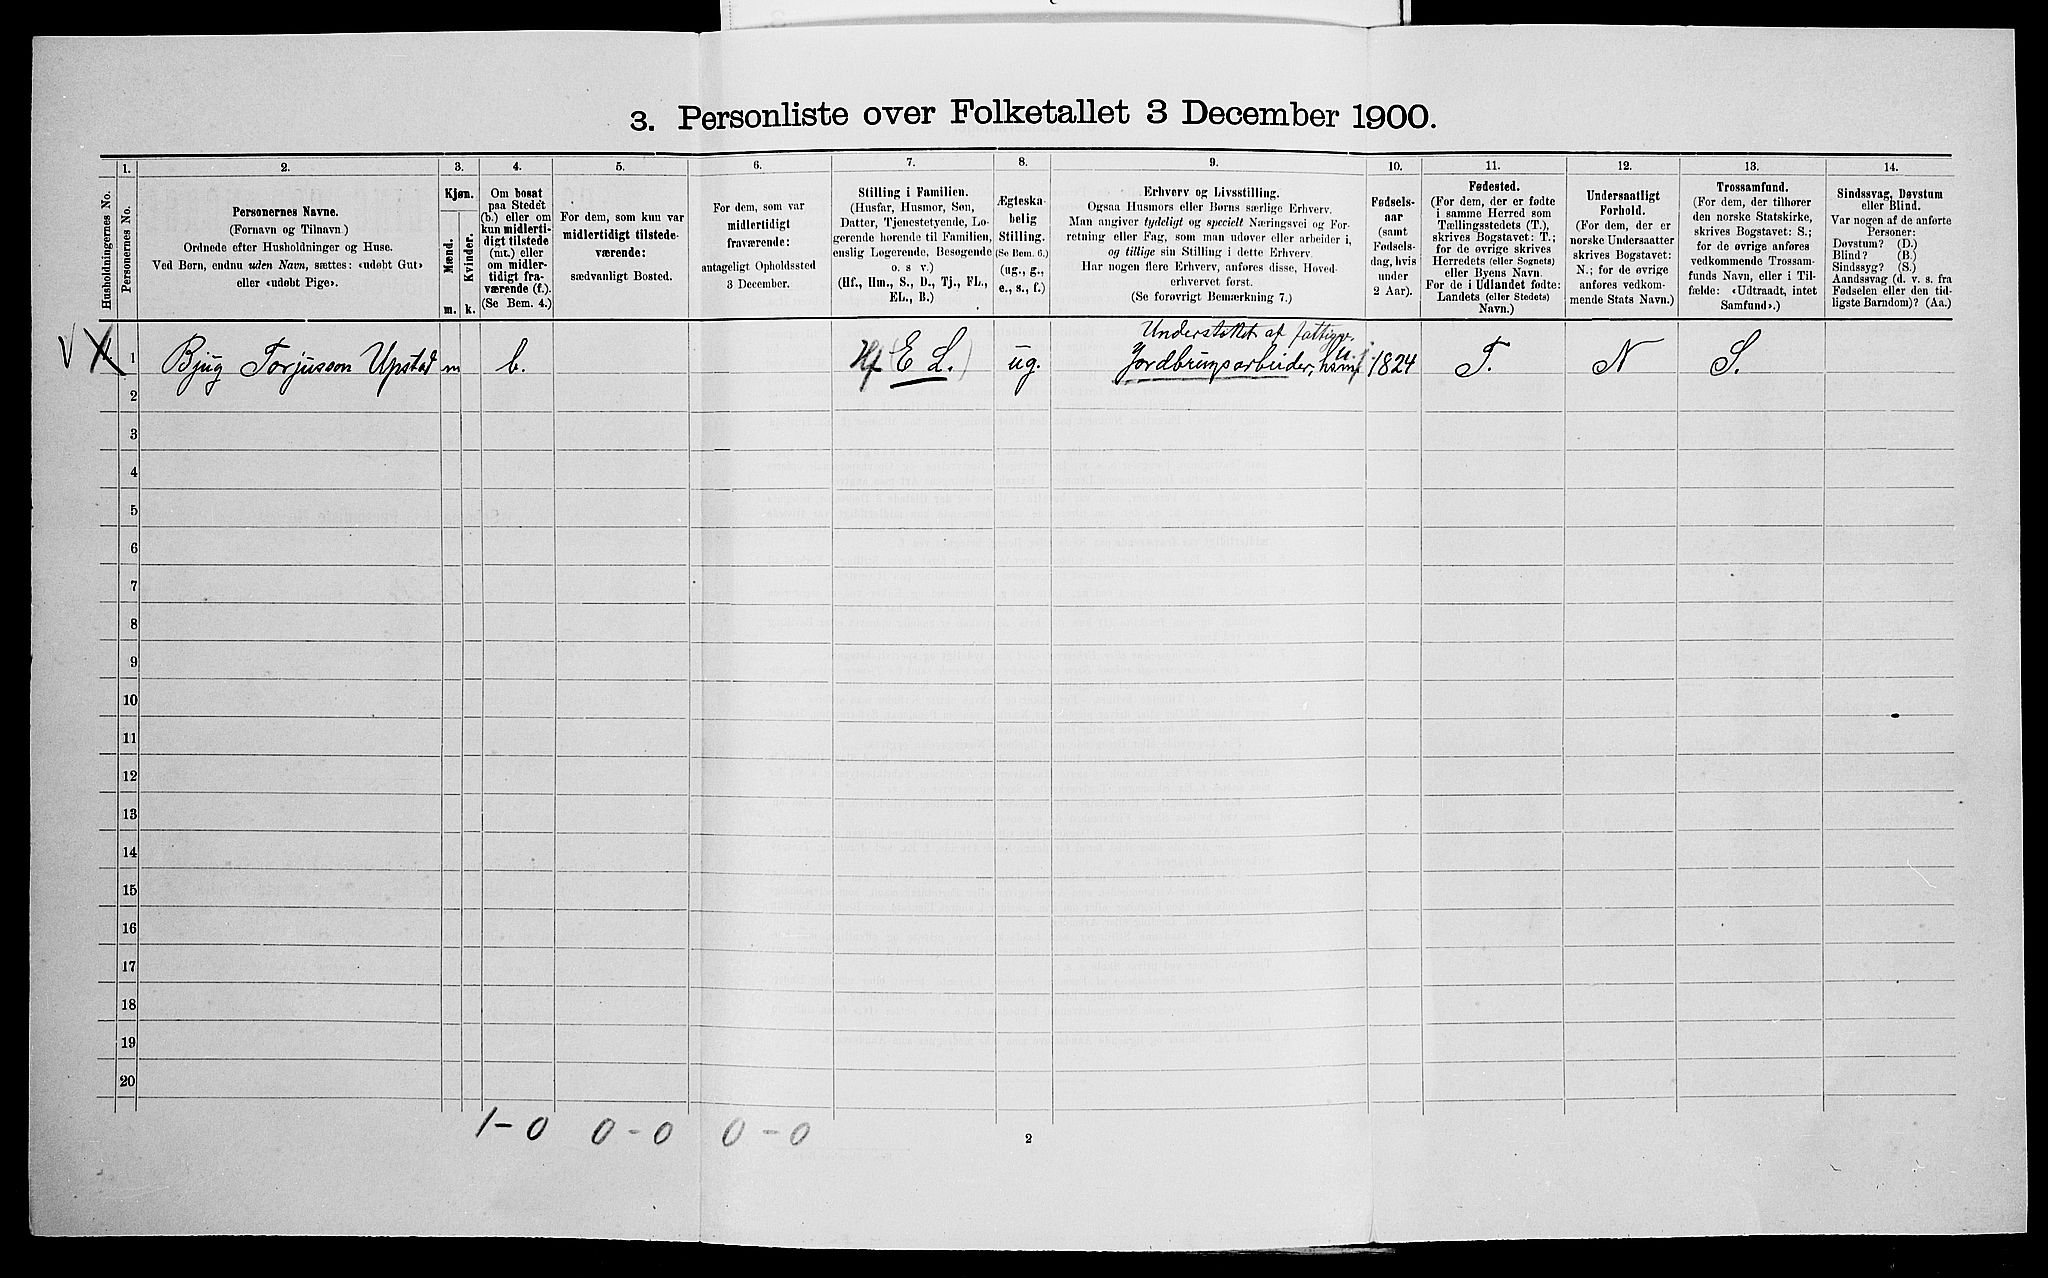 3. Personliste over Folketallet 3 December 1900.
Husholdningernes No.
1.
Personernes No.
2.
Personernes Navne.
(Fornavn og Tilnavn.)
Ordnede efter Husholdninger og Huse.
Ved Børn, endnu uden Navn, sættes: «udøbt Gut»
eller «udøbt Pige».
3.
Kjøn.
Mænd.
Kvinder.
m.
k.
4.
Om bosat
paa Stedet
(b.) eller om
kun midlerti-
digt tilstede
(mt.) eller
om midler-
tidigt fra-
værende (f.).
(Se Bem. 4.)
5.
For dem, som kun var
midlertidigt tilstede-
værende:
sædvanligt Bosted.
6.
For dem, som var
midlertidigt
fraværende:
antageligt Opholdssted
3 December.
7.
Stilling i Familien.
(Husfar, Husmor, Søn,
Datter, Tjenestetyende, Lo-
gerende hørende til Familien,
enslig Logerende, Besøgende
o. s v.)
(Hf., Hm., S., D., Tj., FL.,
EL., B.)
8.
Ægteska-
belig
Stilling.
(Se Bem. 6.)
(ug., g.,
e., s., f.)
9.
Erhverv og Livsstilling.
Ogsaa Husmors eller Børns særlige Erhverv.
Man angiver tydeligt og specielt Næringsvei og For-
retning eller Fag, som man udøver eller arbeider i,
og tillige sin Stilling i dette Erhverv.
Har nogen flere Erhverv, anføres disse, Hoved-
erhvervet først.
(Se forøvrigt Bemærkning 7.)
10.
Fødsels-
aar
(samt
Fødsels-
dag, hvis
under
2 Aar).
11.
Fødested.
(For dem, der er fødte
i samme Herred som
Tællingsstedets (T.),
skrives Bogstavet: T.;
for de øvrige skrives
Herredets (eller Sognets)
eller Byens Navn.
For de i Udlandet fødte:
Landets (eller Stedets)
Navn.)
12.
Undersaatligt
Forhold.
(For dem, der er
norske Undersaatter
skrives Bogstavet:
N.; for de øvrige
anføres vedkom-
mende Stats Navn.)
13.
Trossamfund.
(For dem, der tilhører
den norske Statskirke,
skrives Bogstavet: S.;
for de øvrige anføres
vedkommende Trossam-
funds Navn, eller i Til-
fælde: «Udtraadt, intet
Samfund».)
14.
Sindssvag, Døvstum
eller Blind.
Var nogen af de anførte
Personer:
Døvstum? (D.)
Blind? (B.)
Sindssyg? (S.)
Aandssvag (d. v. s. fra
Fødselen eller den tid-
ligste Barndom)? (Aa.)
Understøttet af fattigv.
1 Bjug Torjusson Upstad m b. Hf (E L.) ug. Jordbrugsarbeider, 1824 T. N S.
2
3
4
5
6
7
8
9
10
11
12
13
14
15
16
17
18
19
20
1-0 0-0 0-0
2